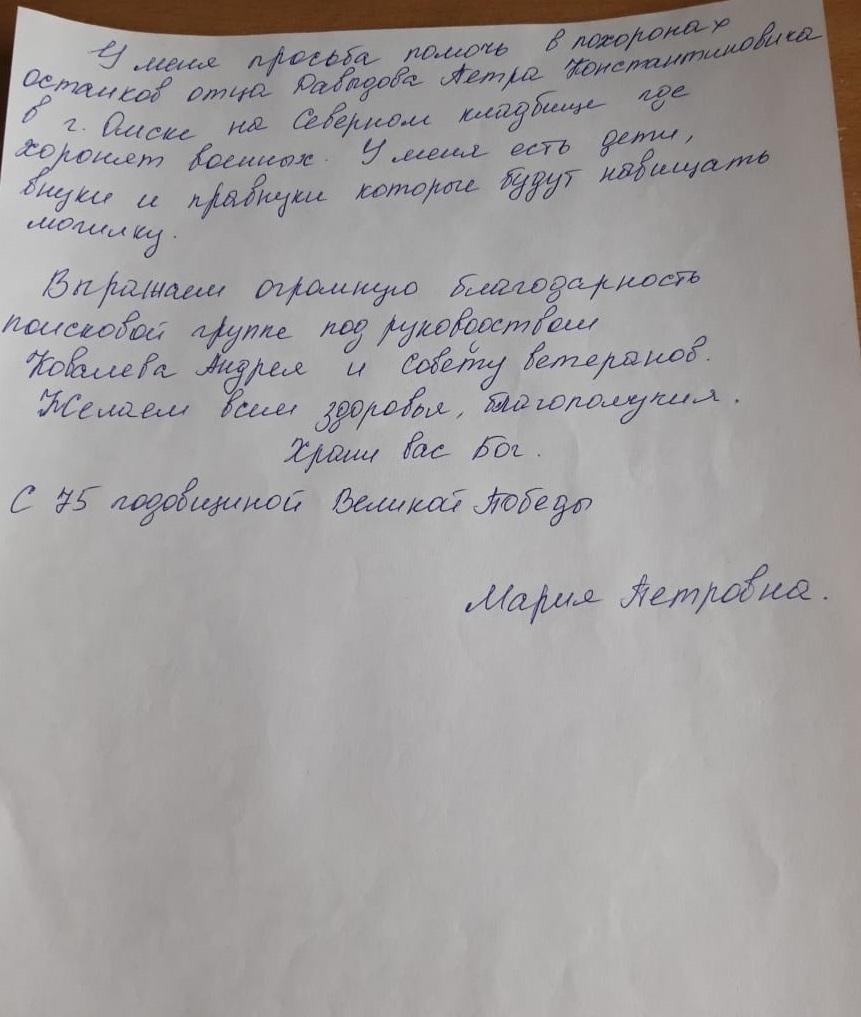 У меня просьба помочь в похоронах
останков отца Давыдова Петра Константиновича
в г. Омске на Северном кладбище где
хоронят военных. У меня есть дети,
внуки и правнуки которые будут навищать
могилку.
Выражаем огромную благодарность
поисковой группе под руководством
Ковалева Андрея и Совету ветеранов.
Желаем всем здоровья, благополучия.
Храни вас Бог.
С 75 годовщиной Великой Победы
Мария Петровна.